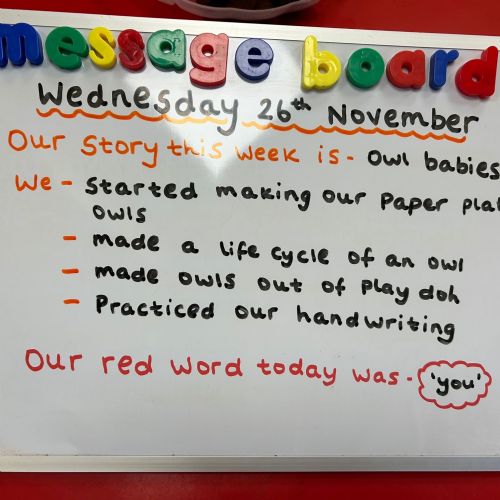 message board
Wednesday 26th November
Our Story this week is - Owl babies
We - Started making our paper plat
owls
- made a life cycle of an owl
- made owls out of play doh
- Practiced our handwriting
Our red word today was - 'you'